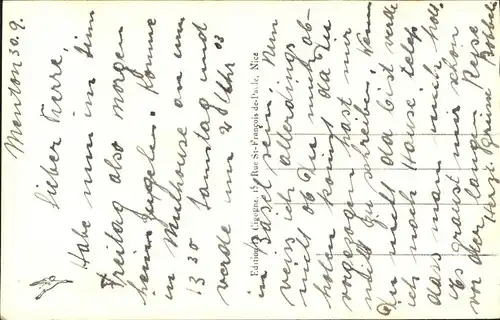 Menton 30.9.
Lieber Pierre,
Habe nun im Sinn
Freitag also morgen
heim zugehen. Komme
in Mulhouse an um
13 30 Samstag und
werde um 20 Uhr 03
in Basel sein. Nun
weiss ich allerdings
nicht ob Du mich ab-
holen kannst da Du
vorgezogen hast mir
nicht zu schreiben. Wenn
Du nicht da bist werde
ich nach Hause telef.
dass man mich holt.
Es graust mir schon
vor der langen Reise.
Herzl. Grüsse
Editions La Cigogne, 15, Rue St-François-de-Paule, Nice